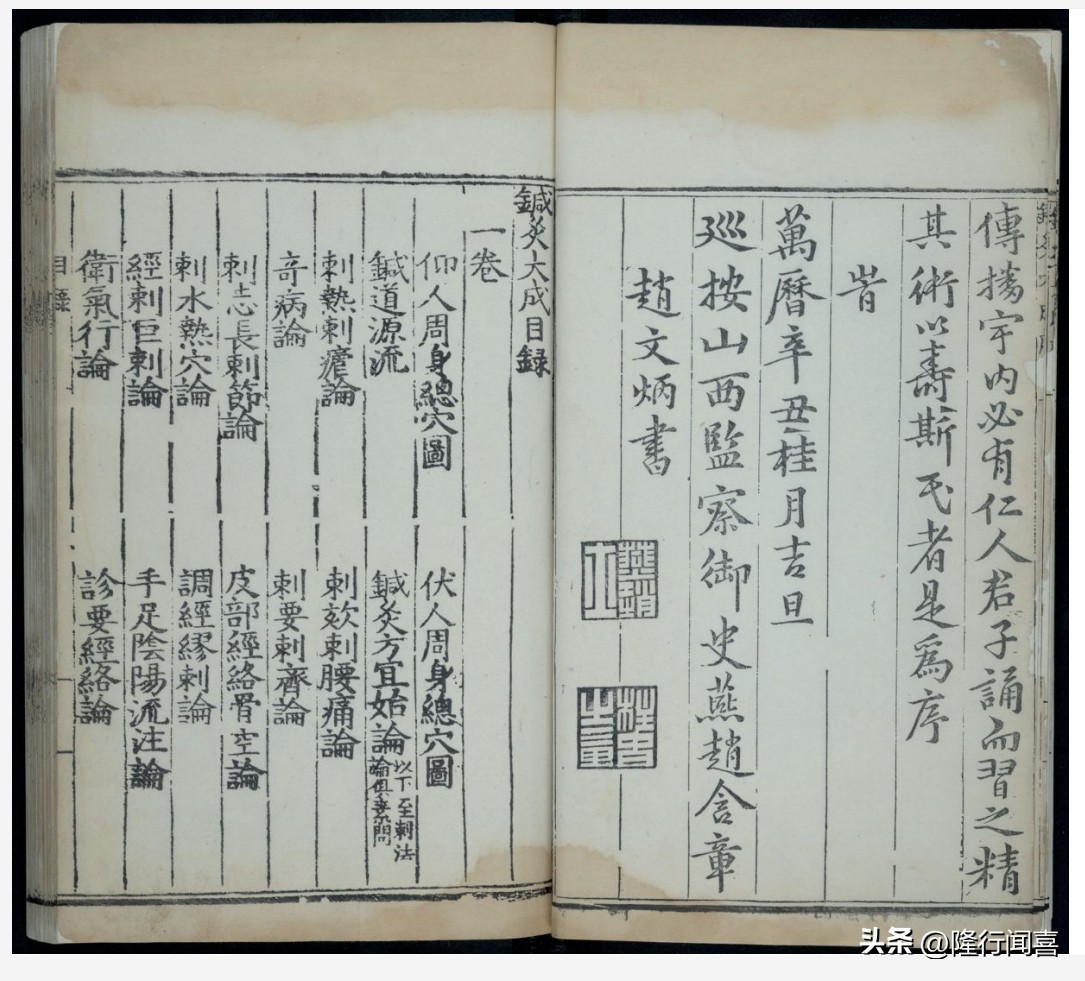 傳播宇內必有仁人君子誦而習之精
其術以壽斯民者是爲序
旹
萬曆辛丑桂月吉旦
巡按山西監察御史燕趙含章
趙文炳書
鍼灸大成目録
一卷
仰人周身總穴圖 伏人周身總穴圖
鍼道源流 鍼灸方宜始論 以下至刺法論俱素問
刺熱刺瘧論 刺欬刺腰痛論
奇病論 刺要刺齊論
刺志長刺節論 皮部經絡骨空論
刺水熱穴論 調經繆刺論
經刺巨刺論 手足陰陽流注論
衛氣行論 診要經絡論
目錄
头条 @隆行闻喜